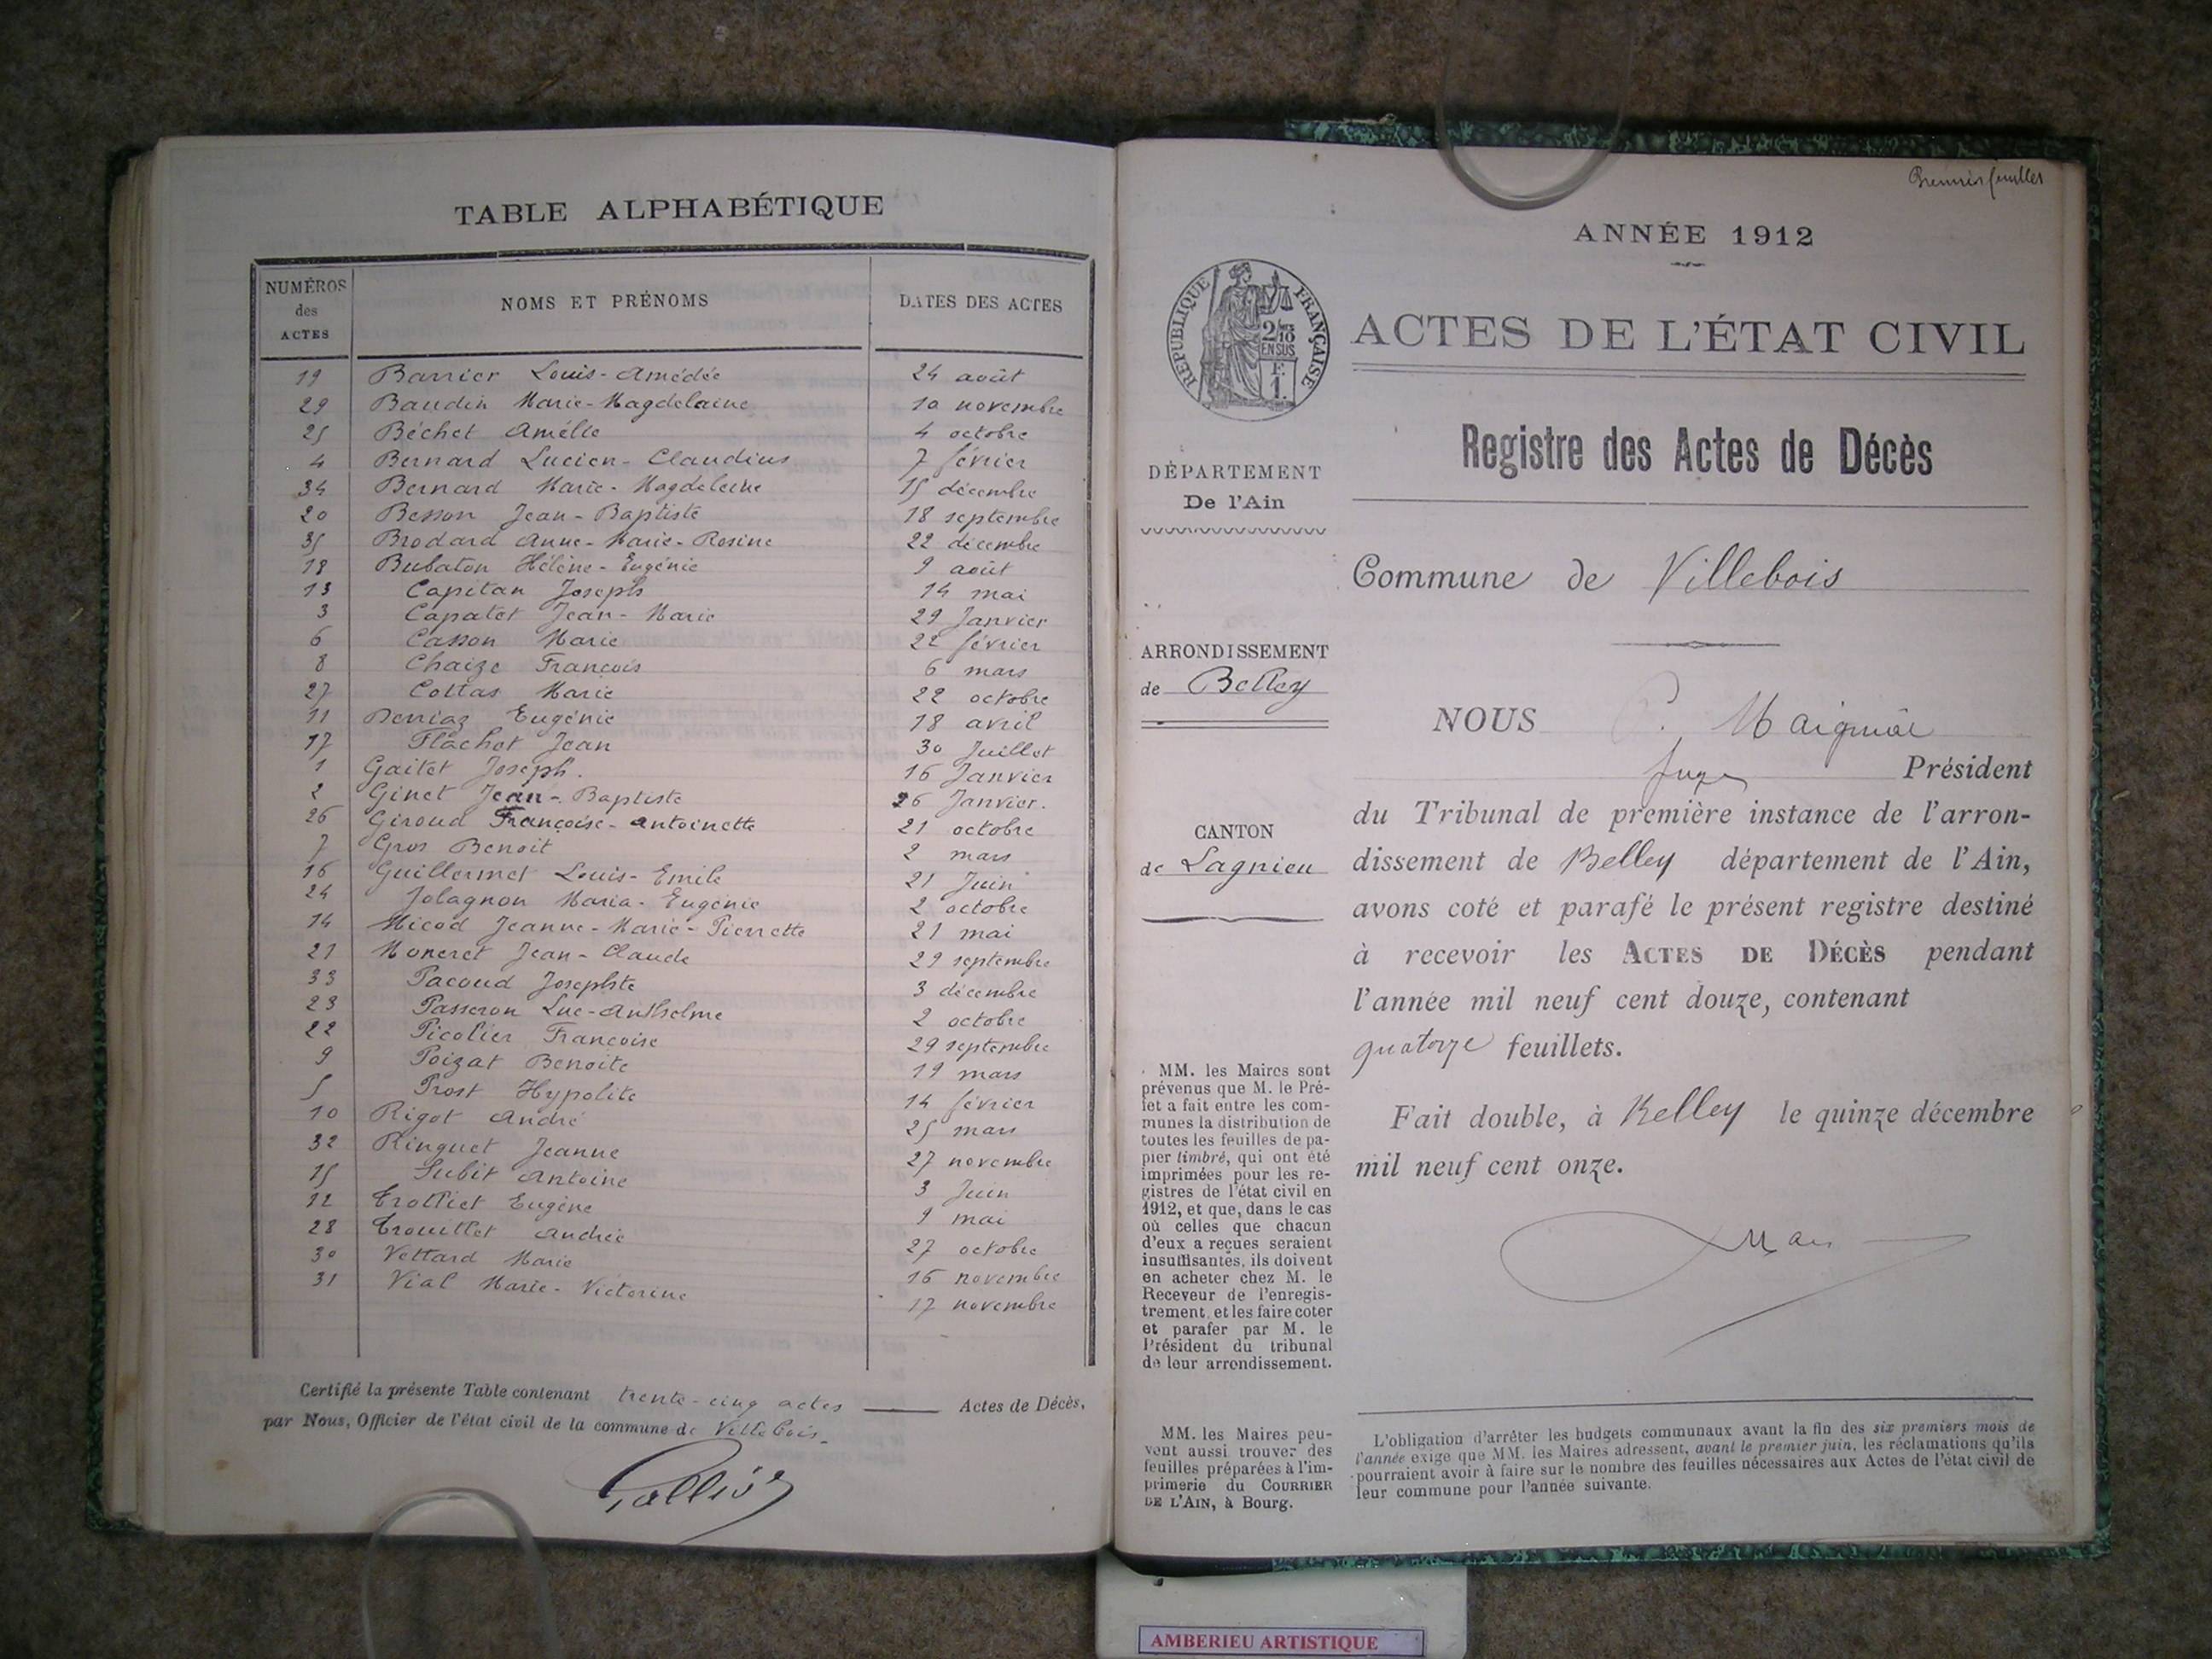 TABLE ALPHABÉTIQUE
NUMÉROS des ACTES NOMS ET PRÉNOMS DATES DES ACTES
19 Barrier Louis-Amédée 24 août
29 Baudin Marie-Magdelaine 10 novembre
25 Béchet Amélie 4 octobre
4 Bernard Lucien-Claudius 7 février
34 Bernard Marie-Magdeleine 15 décembre
20 Besson Jean-Baptiste 18 septembre
35 Brodard Anne-Marie-Rosine 22 décembre
18 Bubaton Hélène-Eugénie 9 août
13 Capitan Joseph 14 mai
3 Capatet Jean-Marie 29 Janvier
6 Casson Marie 22 février
8 Chaize François 6 mars
27 Cottas Marie 22 octobre
11 Derriaz Eugénie 18 avril
17 Flachot Jean 30 Juillet
1 Gaitet Joseph. 16 Janvier
2 Ginet Jean-Baptiste 26 Janvier.
26 Giroud Françoise-Antoinette 21 octobre
7 Gros Benoit 2 mars
16 Guillermet Louis-Emile 21 Juin
24 Jolagnon Maria-Eugénie 2 octobre
14 Micod Jeanne-Marie-Pierrette 21 mai
21 Moneret Jean-Claude 29 septembre
33 Pacoud Josephte 3 décembre
23 Passeron Luc-Anthelme 2 octobre
22 Picolier Françoise 29 septembre
9 Poizat Benoite 19 mars
5 Prost Hypolite 14 février
10 Rigot André 25 mars
32 Ringuet Jeanne 27 novembre
15 Subit Antoine 3 Juin
12 Trolliet Eugène 9 mai
28 Trouillet Andrée 27 octobre
30 Vettard Marie 16 novembre
31 Vial Marie-Victorine 17 novembre
Certifié la présente Table contenant trente-cinq actes Actes de Décès,
par Nous, Officier de l'état civil de la commune de Villebois.
Premier feuillet
ANNÉE 1912
RÉPUBLIQUE FRANÇAISE
2/10
EN SUS
F.
1.
ACTES DE L'ÉTAT CIVIL
Registre des Actes de Décès
DÉPARTEMENT
De l'Ain
Commune de Villebois
ARRONDISSEMENT
de Belley
CANTON
de Lagnieu
MM. les Maires sont
prévenus que M. le Pré-
fet a fait entre les com-
munes la distribution de
toutes les feuilles de pa-
pier timbré, qui ont été
imprimées pour les re-
gistres de l'état civil en
1912, et que, dans le cas
où celles que chacun
d'eux a reçues seraient
insuffisantes, ils doivent
en acheter chez M. le
Receveur de l'enregis-
trement, et les faire coter
et parafer par M. le
Président du tribunal
de leur arrondissement.
MM. les Maires peu-
vent aussi trouver des
feuilles préparées à l'im-
primerie du COURRIER
DE L'AIN, à Bourg.
NOUS
Juge Président
du Tribunal de première instance de l'arron-
dissement de Belley département de l'Ain,
avons coté et parafé le présent registre destiné
à recevoir les ACTES DE DÉCÈS pendant
l'année mil neuf cent douze, contenant
quatorze feuillets.
Fait double, à Belley le quinze décembre
mil neuf cent onze.
L'obligation d'arrêter les budgets communaux avant la fin des six premiers mois de
l'année exige que MM. les Maires adressent, avant le premier juin, les réclamations qu'ils
pourraient avoir à faire sur le nombre des feuilles nécessaires aux Actes de l'état civil de
leur commune pour l'année suivante.
AMBERIEU ARTISTIQUE